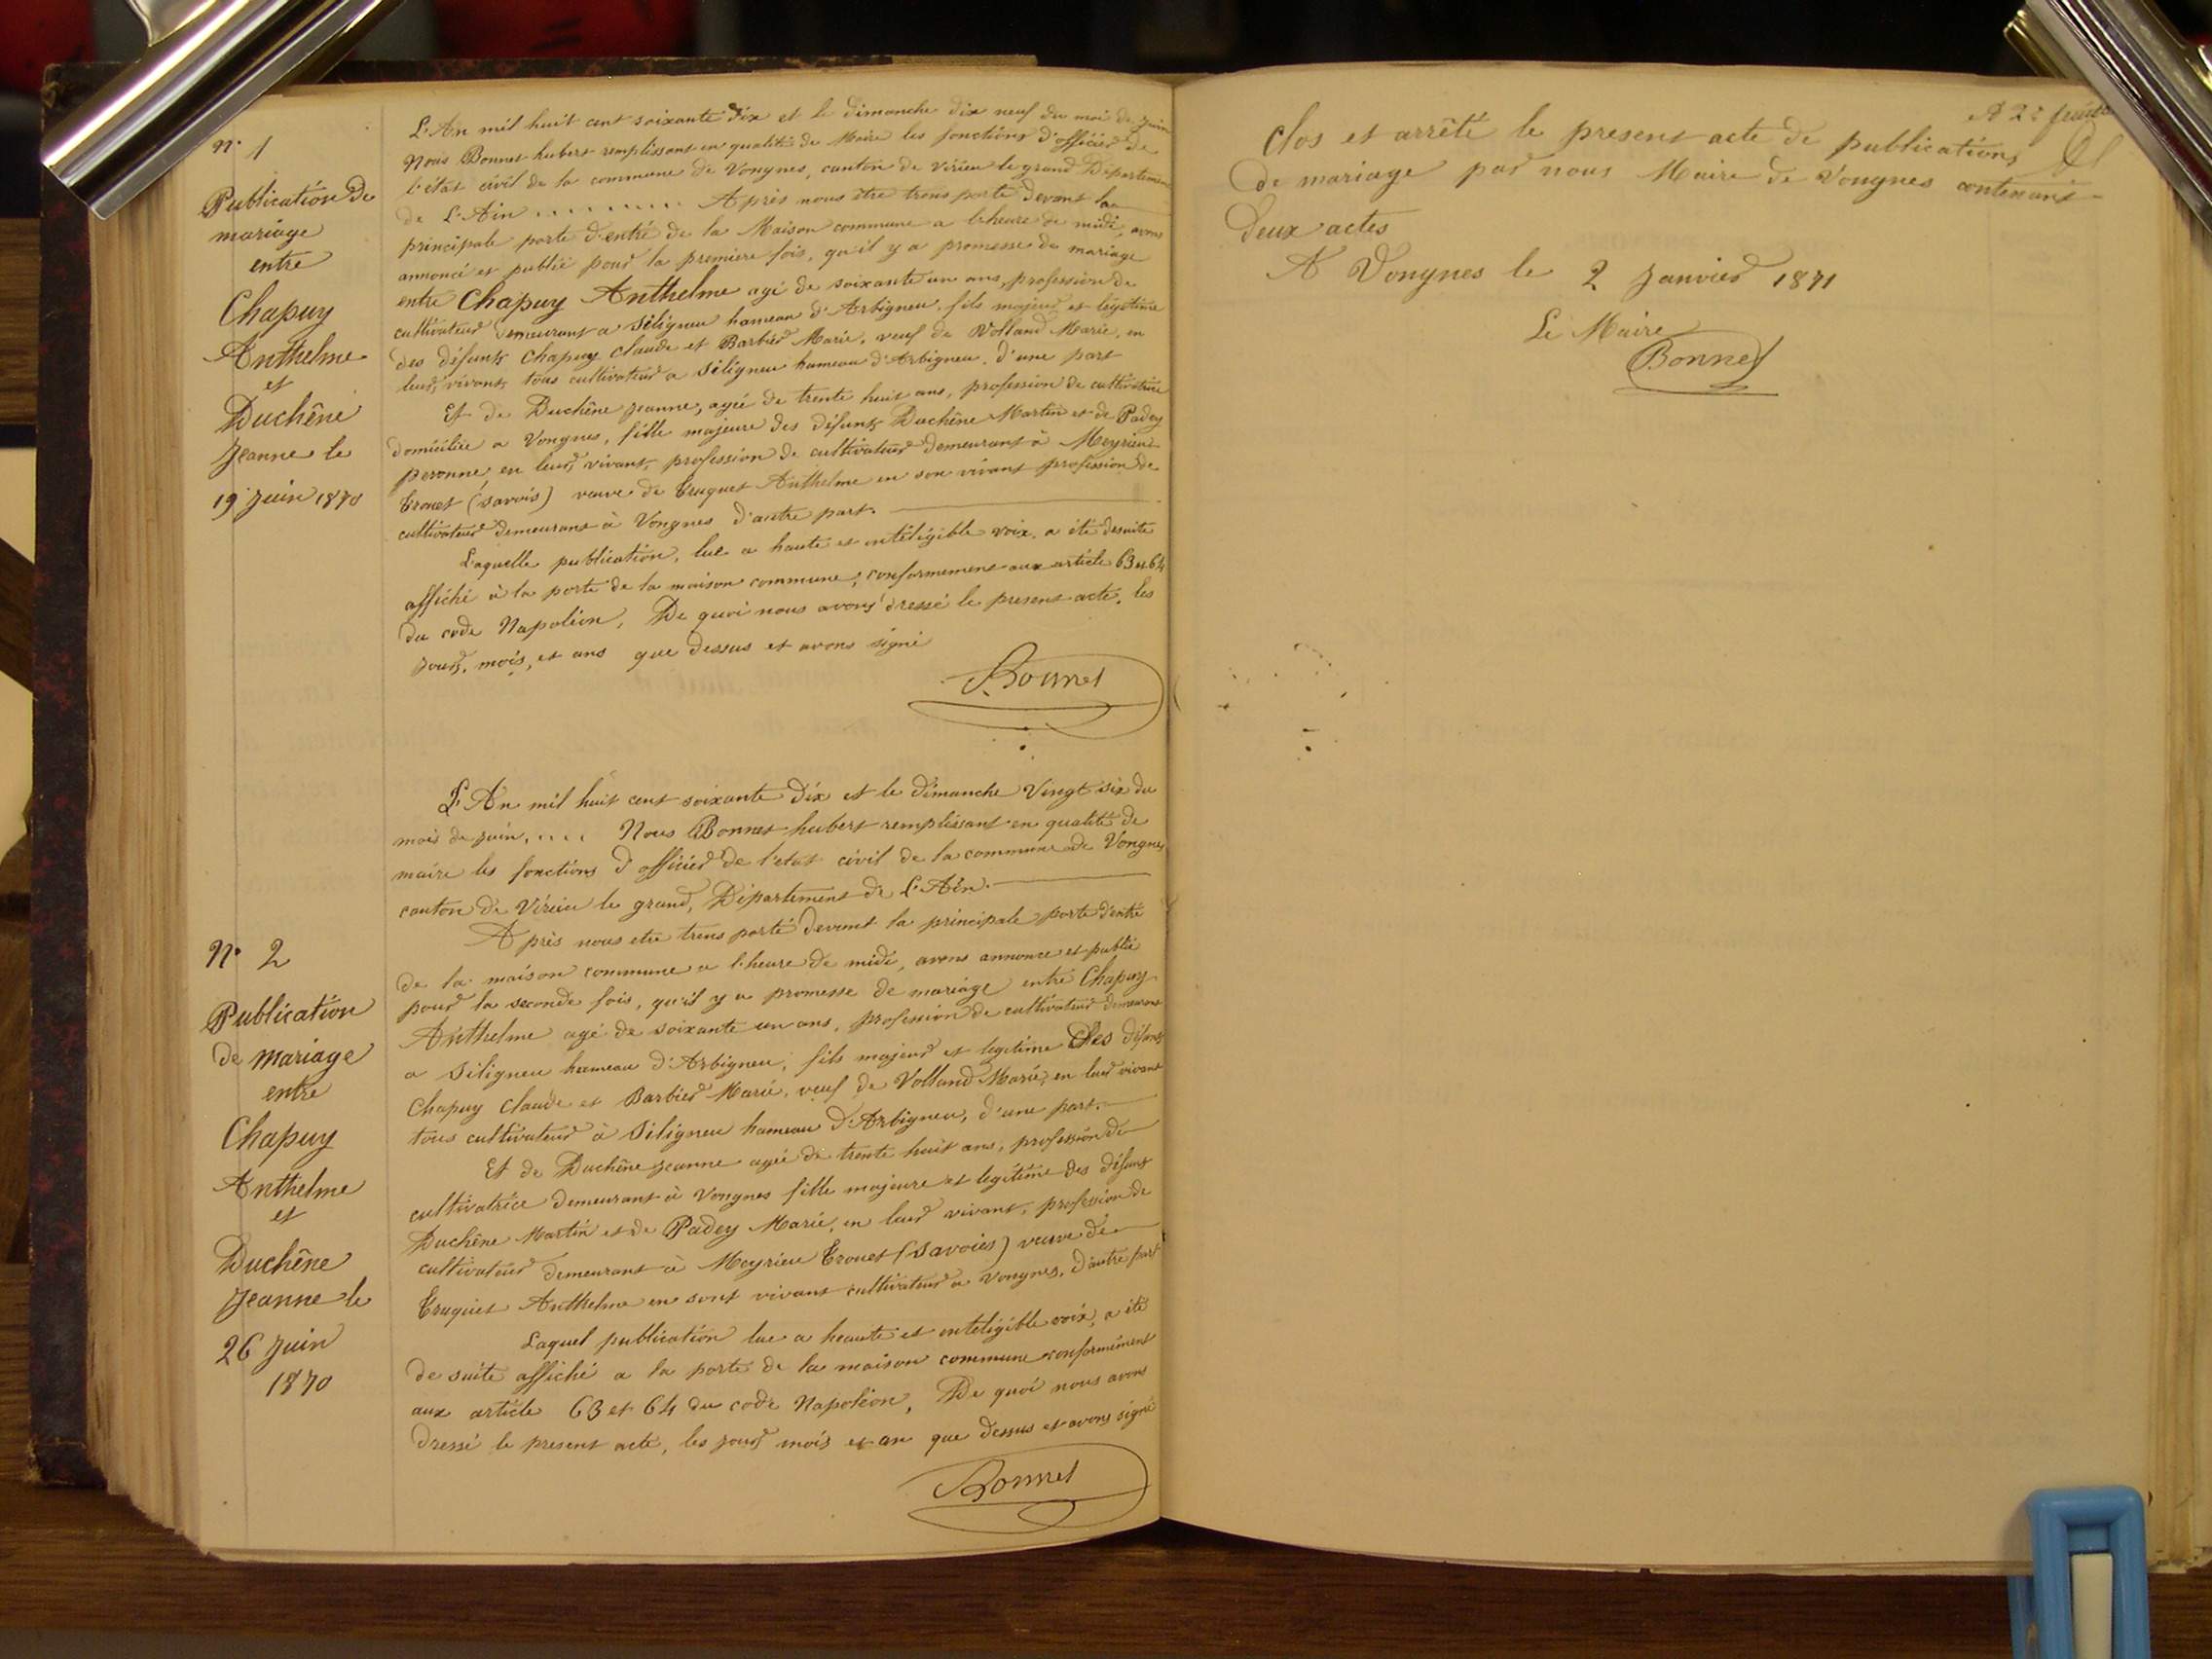 n° 1
Publication de
mariage
entre
Chapuy
Anthelme
et
Duchêne
Jeanne le
19 Juin 1870
L'An mil huit cent soixante dix et le dimanche dix neuf du moi de Juin
Nous Bonnet hubert remplissant en qualité de Maire les fonctions d'officier de
l'état civil de la commune de Vongnes, canton de Virieu le grand Département
de L'Ain ......... Après nous être trens porté devant la
principale porte d'entré de la Maison commune a l'heure de midi, avons
annoncé et publié pour la premiere fois, qu'il y a promesse de mariage
entre Chapuy Anthelme agé de soixante un ans, profession de
cultivateur demeurant a Siligneu hameau d'Arbigneu, fils majeur et légitime
des défunts Chapuy Claude et Barbier Marie, veuf de Volland Marie, en
leurs vivants tous cultivateur a Siligneu hameau d'Arbigneu, d'une part
Et de Duchêne Jeanne, agée de trente huit ans, profession de cultivatrice
domiciliée a Vongnes, fille majeure des défunts Duchêne Martin et de Padey
peronne, en leurs vivant, profession de cultivateur demeurant à Meyrieu
Trouet (Savois) veuve de Truquet Anthelme en son vivant profession de
cultivateur demeurant à Vongnes d'autre part.
Laquelle publication, lue a haute et inteligible voix, a été desuite
affiché à la porte de la maison commune, conformement aux article 63 et 64
du code Napoléon, De quoi nous avons dressé le present acte, les
jours, mois, et ans que dessus et avons signé
Bonnet
N° 2
Publication
de mariage
entre
Chapuy
Anthelme
et
Duchêne
Jeanne le
26 Juin
1870
L'An mil huit cent soixante dix et le dimanche Vingt six du
mois de juin, .... Nous Bonnet hubert remplissant en qualité de
maire les fonctions d'officier de l'etat civil de la commune de Vongnes
canton de Virieu le grand, Département de L'Ain.
Après nous etre trens porté devant la principale porte d'entré
de la maison commune a l'heure de midi, avons annonce et publié
pour la seconde fois, qu'il y a promesse de mariage entre Chapuy
Anthelme agé de soixante un ans, profession de cultivateur demeurant
a Siligneu hameau d'Arbigneu, fils majeur et legitime des défunts
Chapuy Claude et Barbier Marie, veuf de Volland Marie, en leur vivant
tous cultivateur à Siligneu hameau d'Arbigneu, d'une part.
Et de Duchêne Jeanne agée de trente huit ans, profession de
cultivatrice demeurant à Vongnes fille majeure et legitime des défunt
Duchêne Martin et de Padey Marie, en leur vivant, profession de
cultivateur demeurant à Meyrieu Trouet (Savoies) veuve de
Truquet Anthelme en sont vivant cultivateur a Vongnes, d'autre part
Laquel publication lue a heaute et inteligible voix, a été
de suite affiché a la porte de la maison commune conformément
aux article 63 et 64 du code Napoléon, De quoi nous avons
dressé le present acte, les jour mois et an que dessus et avons signé
Bonnet
Clos et arrêté le present acte de publications
de mariage par nous Maire de Vongnes contenant
Deux actes
A Vongnes le 2 Janvier 1871
Le Maire
Bonnet